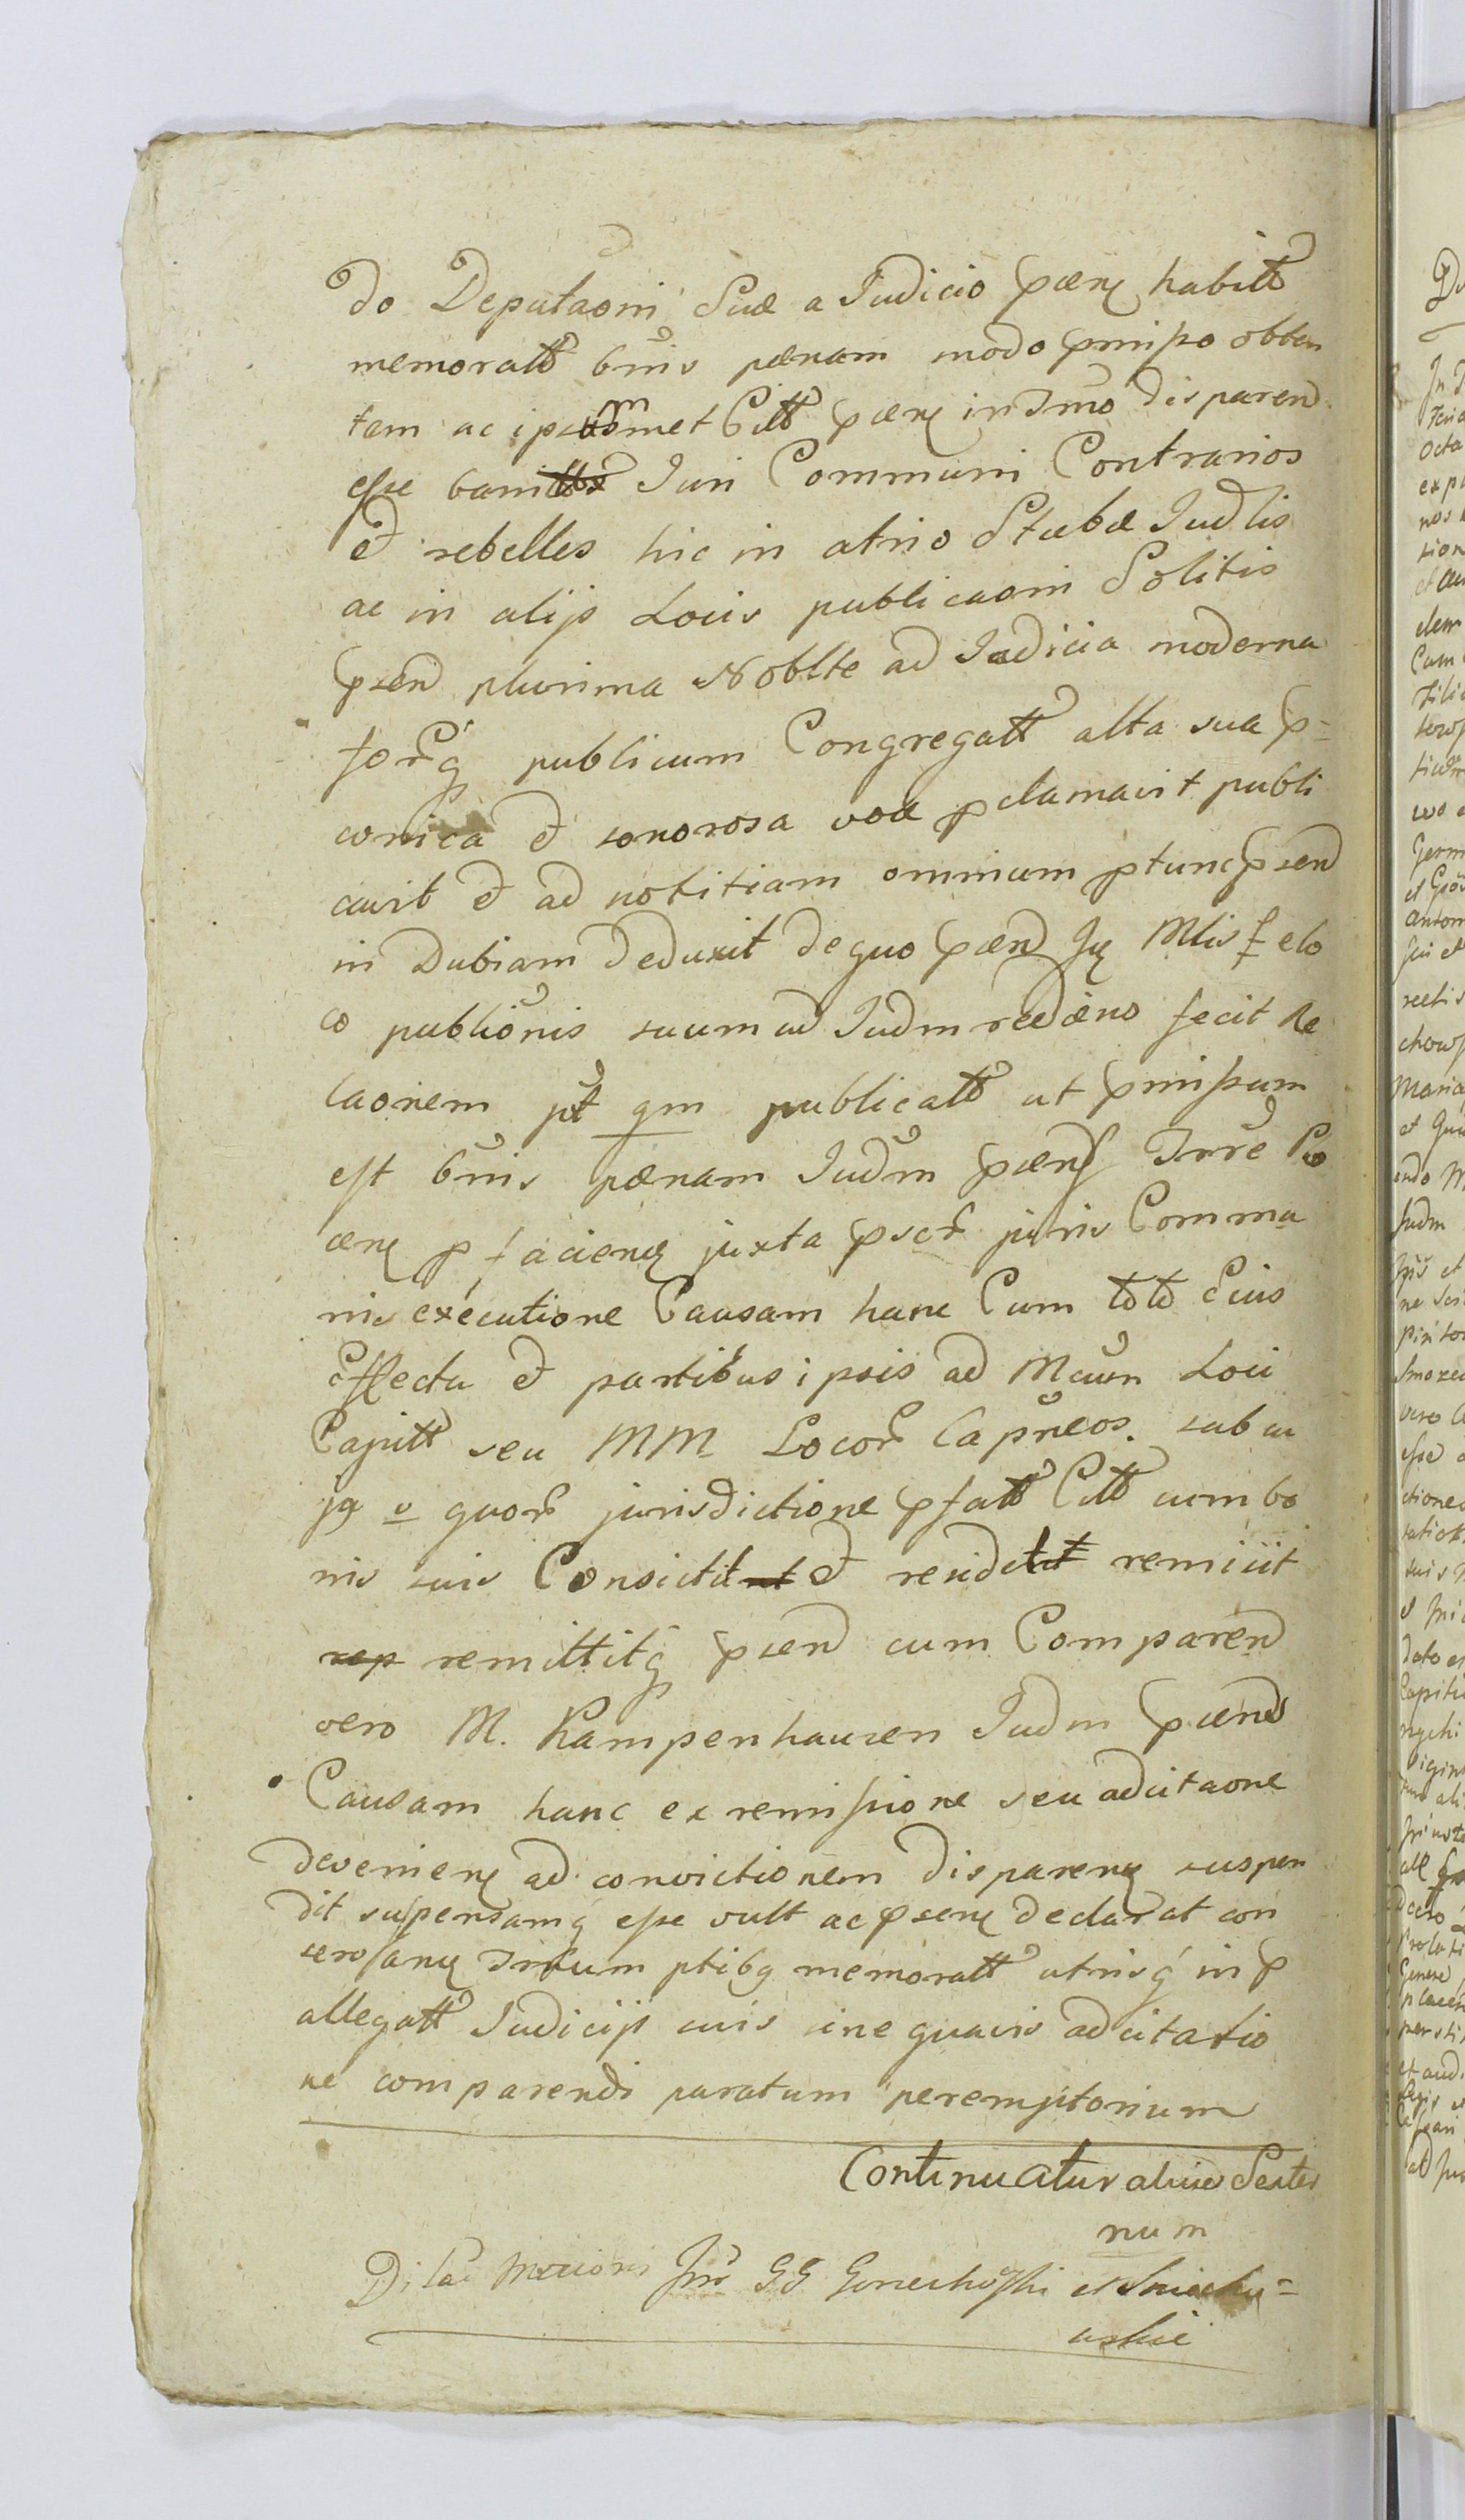 do Deputaoni Suæ a Judicio pñen habitt
memoratt bnis pænam modo pmisso obten
tem ac ipsummet Citt pñen in Tmō disparend
esse banitt Juri Communi Contrarios
et rebelles hic in atrio Stubæ Judlis
ac in alijs Locis publicaoni Solitis
psend plurima Noblte ad Judicia moderna
forq publicum Congregatt alta sua p-
conica et sonorosa voce pclamavit publi
cavit et ad notitiam omnium ptunc psend
in Dubiam Deduxit de quo pñend Mlis elo
co publionis suum ad Judm redeeno fecit Re
laonem pt qm publicatt ut pmissum
est bnis pænam Judm pñens Trre
cene p faciend juxta pscr juris Commu
nis executione Causam hanc Cum toto Eius
Effectu et partibus ipsis ad Mcum Loci
Capitt seu MM Locor Capneos. sub cu
jq v quor jurisdictione pfatt Citt cum bo
nis suis Consistit et residet remisit
rep remittitq psend cum Comparend
vero M. Kampenhauzen Judm pñend
Causam hanc ex remissione seu adcitaone
devenien ad convictionem disparend suspen
dit suspensamq esse vult ac psen declarat con
servand Trium ptibq memoratt utrisq in p
allegatt Judicijs cuis sine quavis adcitatio
ne comparendi paratum peremptorium
Continuatur alius Sexter
num
GG et
uskie